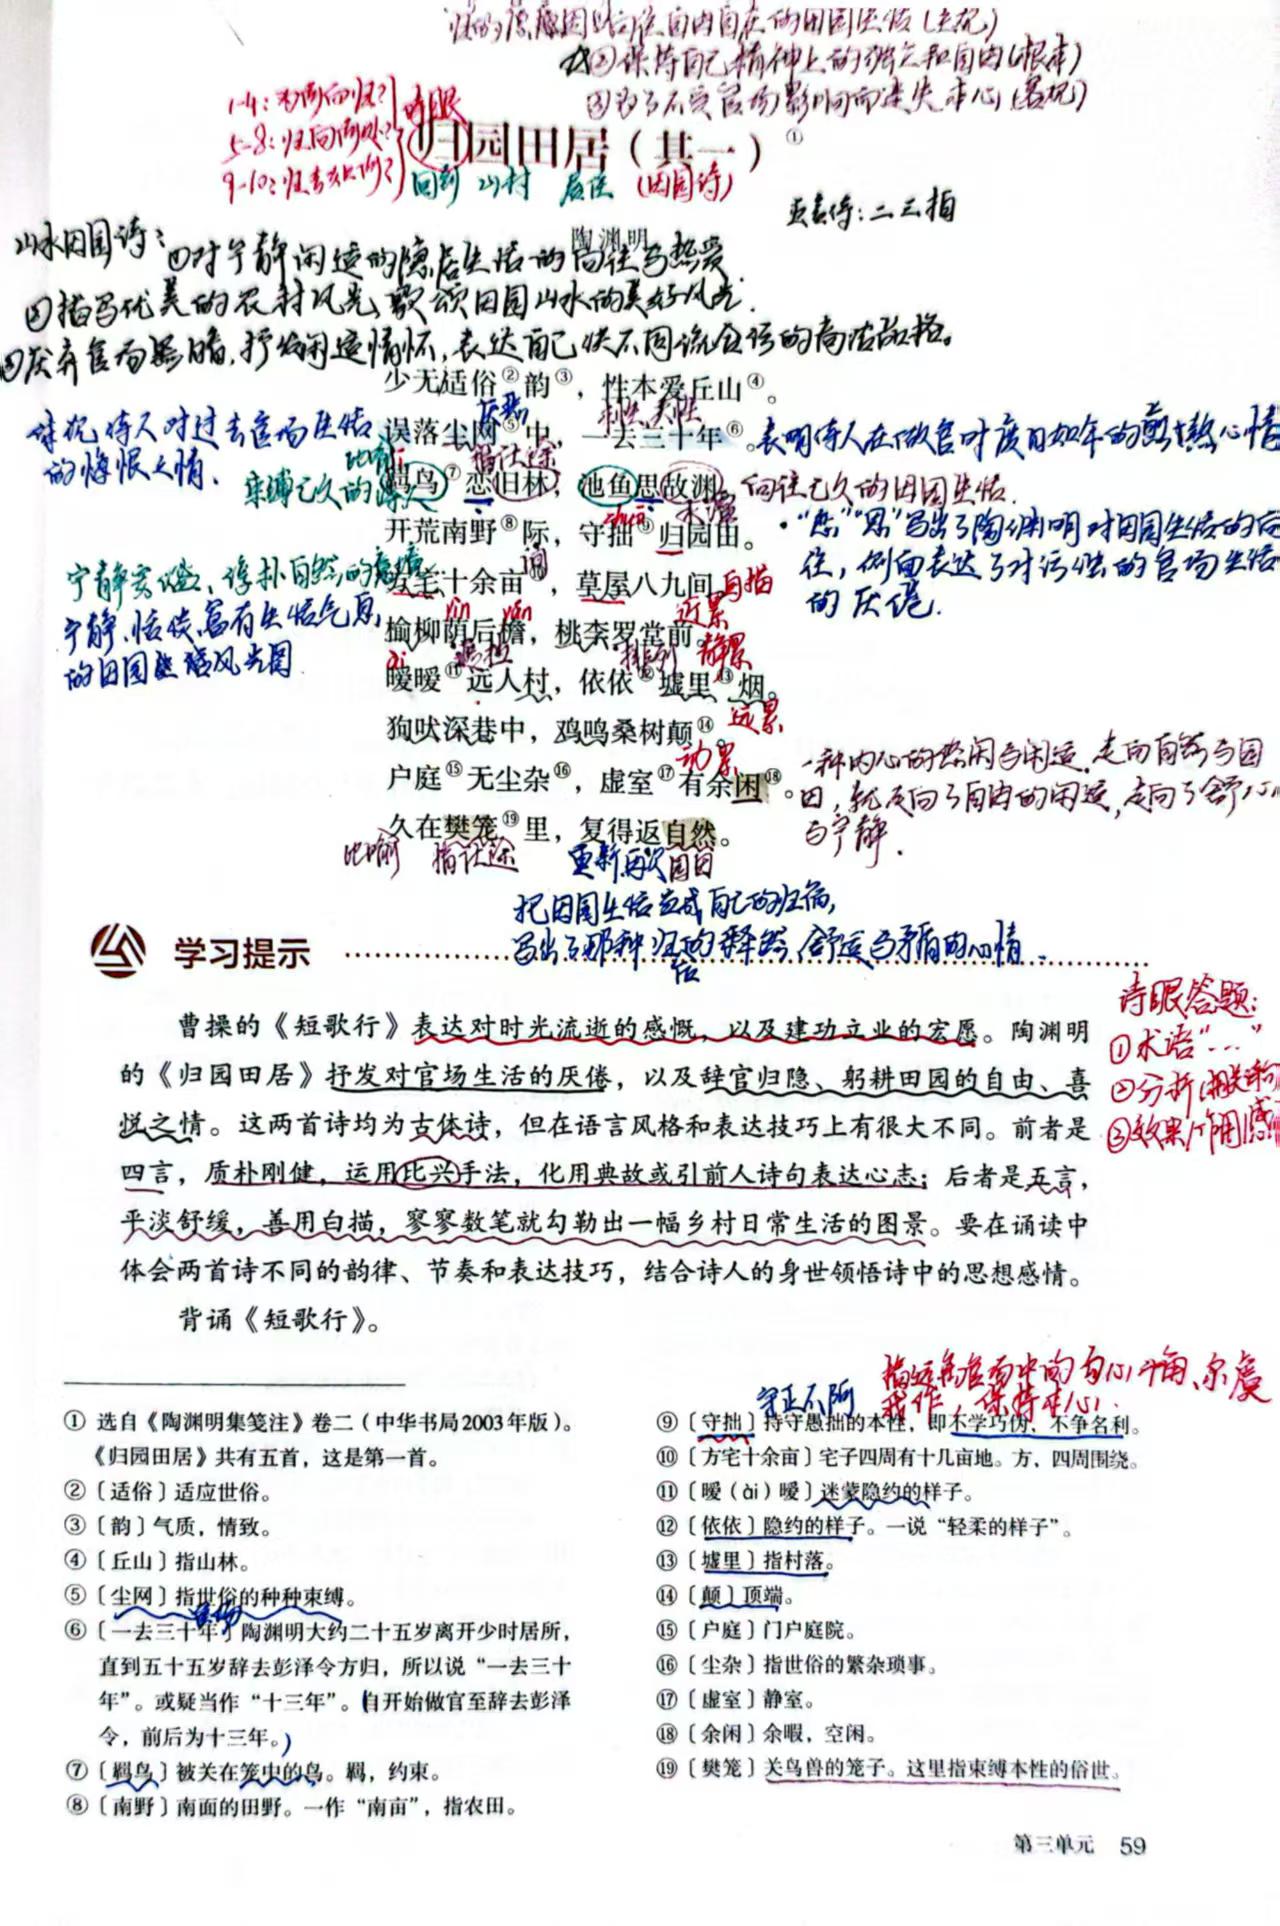 归的原因①向往自由自在的田园生活(主观)
②保持自己精神上的独立和自由(根本)
③为了不受官场影响而迷失本心(客观)
1-4:为何而归?
5-8:归向何处?
9-10:归去如何?
诗眼
归园田居（其一）①
回到 山村 居住 (田园诗)
五言诗:二三拍
陶渊明
山水田园诗:
①对宁静闲适的隐居生活的向往与热爱
②描写优美的农村风光,歌颂田园山水的美好风光.
③厌弃官场黑暗,抒发闲适情怀,表达自己决不同流合污的高洁品格。
少无适俗②韵③，性本爱丘山④。
厌恶 本性、天性
误落尘网⑤中，一去三十年⑥。
体现诗人对过去官场生活
的悔恨之情.
表明诗人在做官时度日如年的煎熬心情
比喻 指仕途
羁鸟⑦恋旧林，池鱼思故渊。
束缚已久的诗人
向往已久的田园生活.
zhuō 水潭
开荒南野⑧际，守拙⑨归园田。
"恋""思"写出了陶渊明对田园生活的向
往，侧面表达了对污浊的官场生活
的厌倦.
方宅十余亩⑩，草屋八九间。
白描
宁静安谧、淳朴自然的
宁静、恬淡、富有生活气息
的田园 风光图
yīn yán 近景
榆柳荫后檐，桃李罗堂前。
ài 遮挡 排列 静景
暧暧⑪远人村，依依⑫墟里⑬烟。
远景
狗吠深巷中，鸡鸣桑树颠⑭。
动景
户庭⑮无尘杂⑯，虚室⑰有余闲⑱。
一种内心的悠闲与闲适.走向自然与田
园,就走向了自由的闲适,走向了舒心
与宁静.
久在樊笼⑲里，复得返自然。
比喻 指仕途 重新再次 田园
把田园生活当成自己的归宿,
写出了那种归后的释然,舒适与矛盾的心情.
学习提示
诗眼答题:
①术语"..."
②分析(相关诗句
③效果/作用/感
曹操的《短歌行》表达对时光流逝的感慨，以及建功立业的宏愿。陶渊明
的《归园田居》抒发对官场生活的厌倦，以及辞官归隐、躬耕田园的自由、喜
悦之情。这两首诗均为古体诗，但在语言风格和表达技巧上有很大不同。前者是
四言，质朴刚健，运用比兴手法，化用典故或引前人诗句表达心志；后者是五言，
平淡舒缓，善用白描，寥寥数笔就勾勒出一幅乡村日常生活的图景。要在诵读中
体会两首诗不同的韵律、节奏和表达技巧，结合诗人的身世领悟诗中的思想感情。
背诵《短歌行》。
① 选自《陶渊明集笺注》卷二（中华书局2003年版）。
《归园田居》共有五首，这是第一首。
②〔适俗〕适应世俗。
③〔韵〕气质，情致。
④〔丘山〕指山林。
⑤〔尘网〕指世俗的种种束缚。
官场
⑥〔一去三十年〕陶渊明大约二十五岁离开少时居所，
直到五十五岁辞去彭泽令方归，所以说“一去三十
年”。或疑当作“十三年”。（自开始做官至辞去彭泽
令，前后为十三年。）
⑦〔羁鸟〕被关在笼中的鸟。羁，约束。
⑧〔南野〕南面的田野。一作“南亩”，指农田。
守正不阿
保持本心.
⑨〔守拙〕持守愚拙的本性，即不学巧伪，不争名利。
⑩〔方宅十余亩〕宅子四周有十几亩地。方，四周围绕。
⑪〔暧（ài）暧〕迷蒙隐约的样子。
⑫〔依依〕隐约的样子。一说“轻柔的样子”。
⑬〔墟里〕指村落。
⑭〔颠〕顶端。
⑮〔户庭〕门户庭院。
⑯〔尘杂〕指世俗的繁杂琐事。
⑰〔虚室〕静室。
⑱〔余闲〕余暇，空闲。
⑲〔樊笼〕关鸟兽的笼子。这里指束缚本性的俗世。
第三单元 59